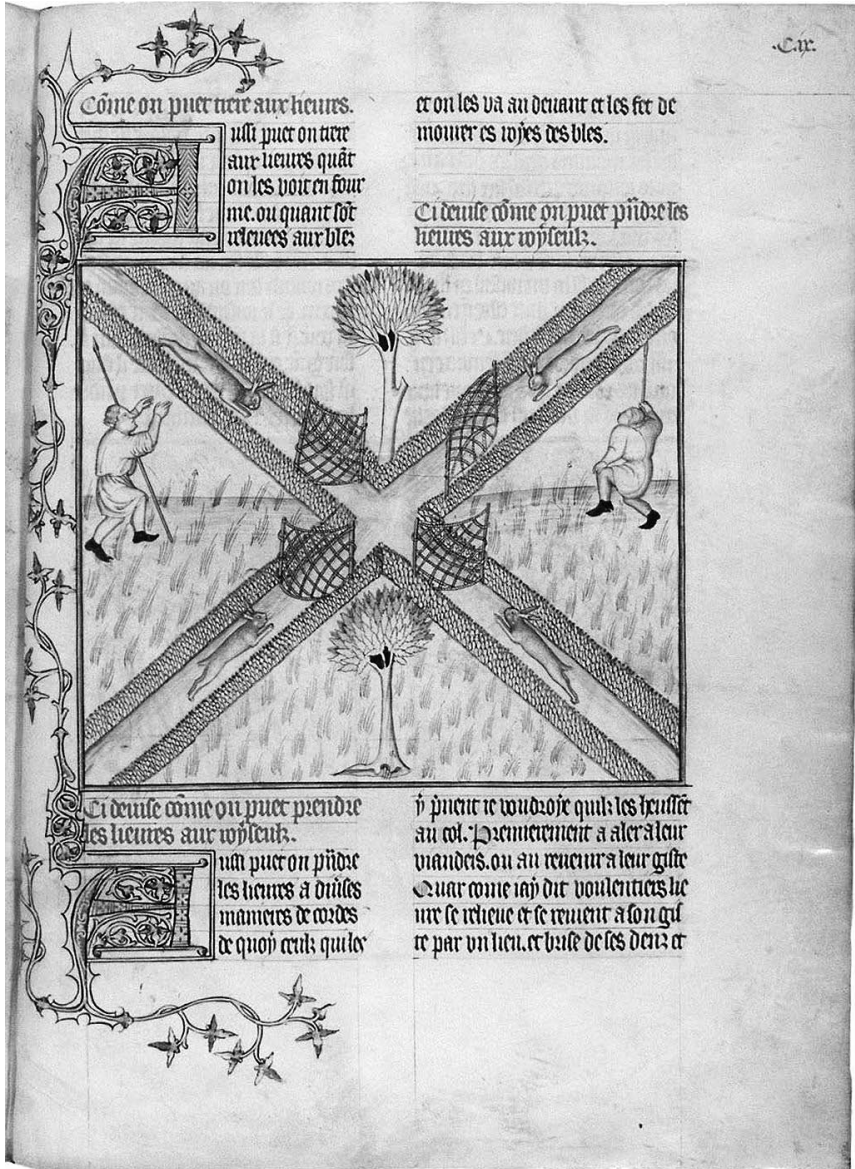 .Cix.
Cōme on puet traire aux lieures.
Aussi puet on traire
aux lieures quāt
on les voit en four
me. ou quant sōt
releuees aux blez
et on les va au deuant et les fet de
mourer es voyes des bles.
Ci deuise cōme on puet pñdre les
lieures aux voyseulz.
Ci deuise cōme on puet prendre
les lieures aux voyseulz.
Aussi puet on pñdre
les lieures a diūses
manieres de cordes
de quoy ceulz qui les
ÿ p̄nent ie voudroye quilz les heussēt
au col. Premierement a aler a leur
viandeis. ou au reuenir a leur giste
Quar come iaÿ dit voulentiers lie
ure se relieue et se reuient a son gis
te par vn lieu. et brise de ses denz et